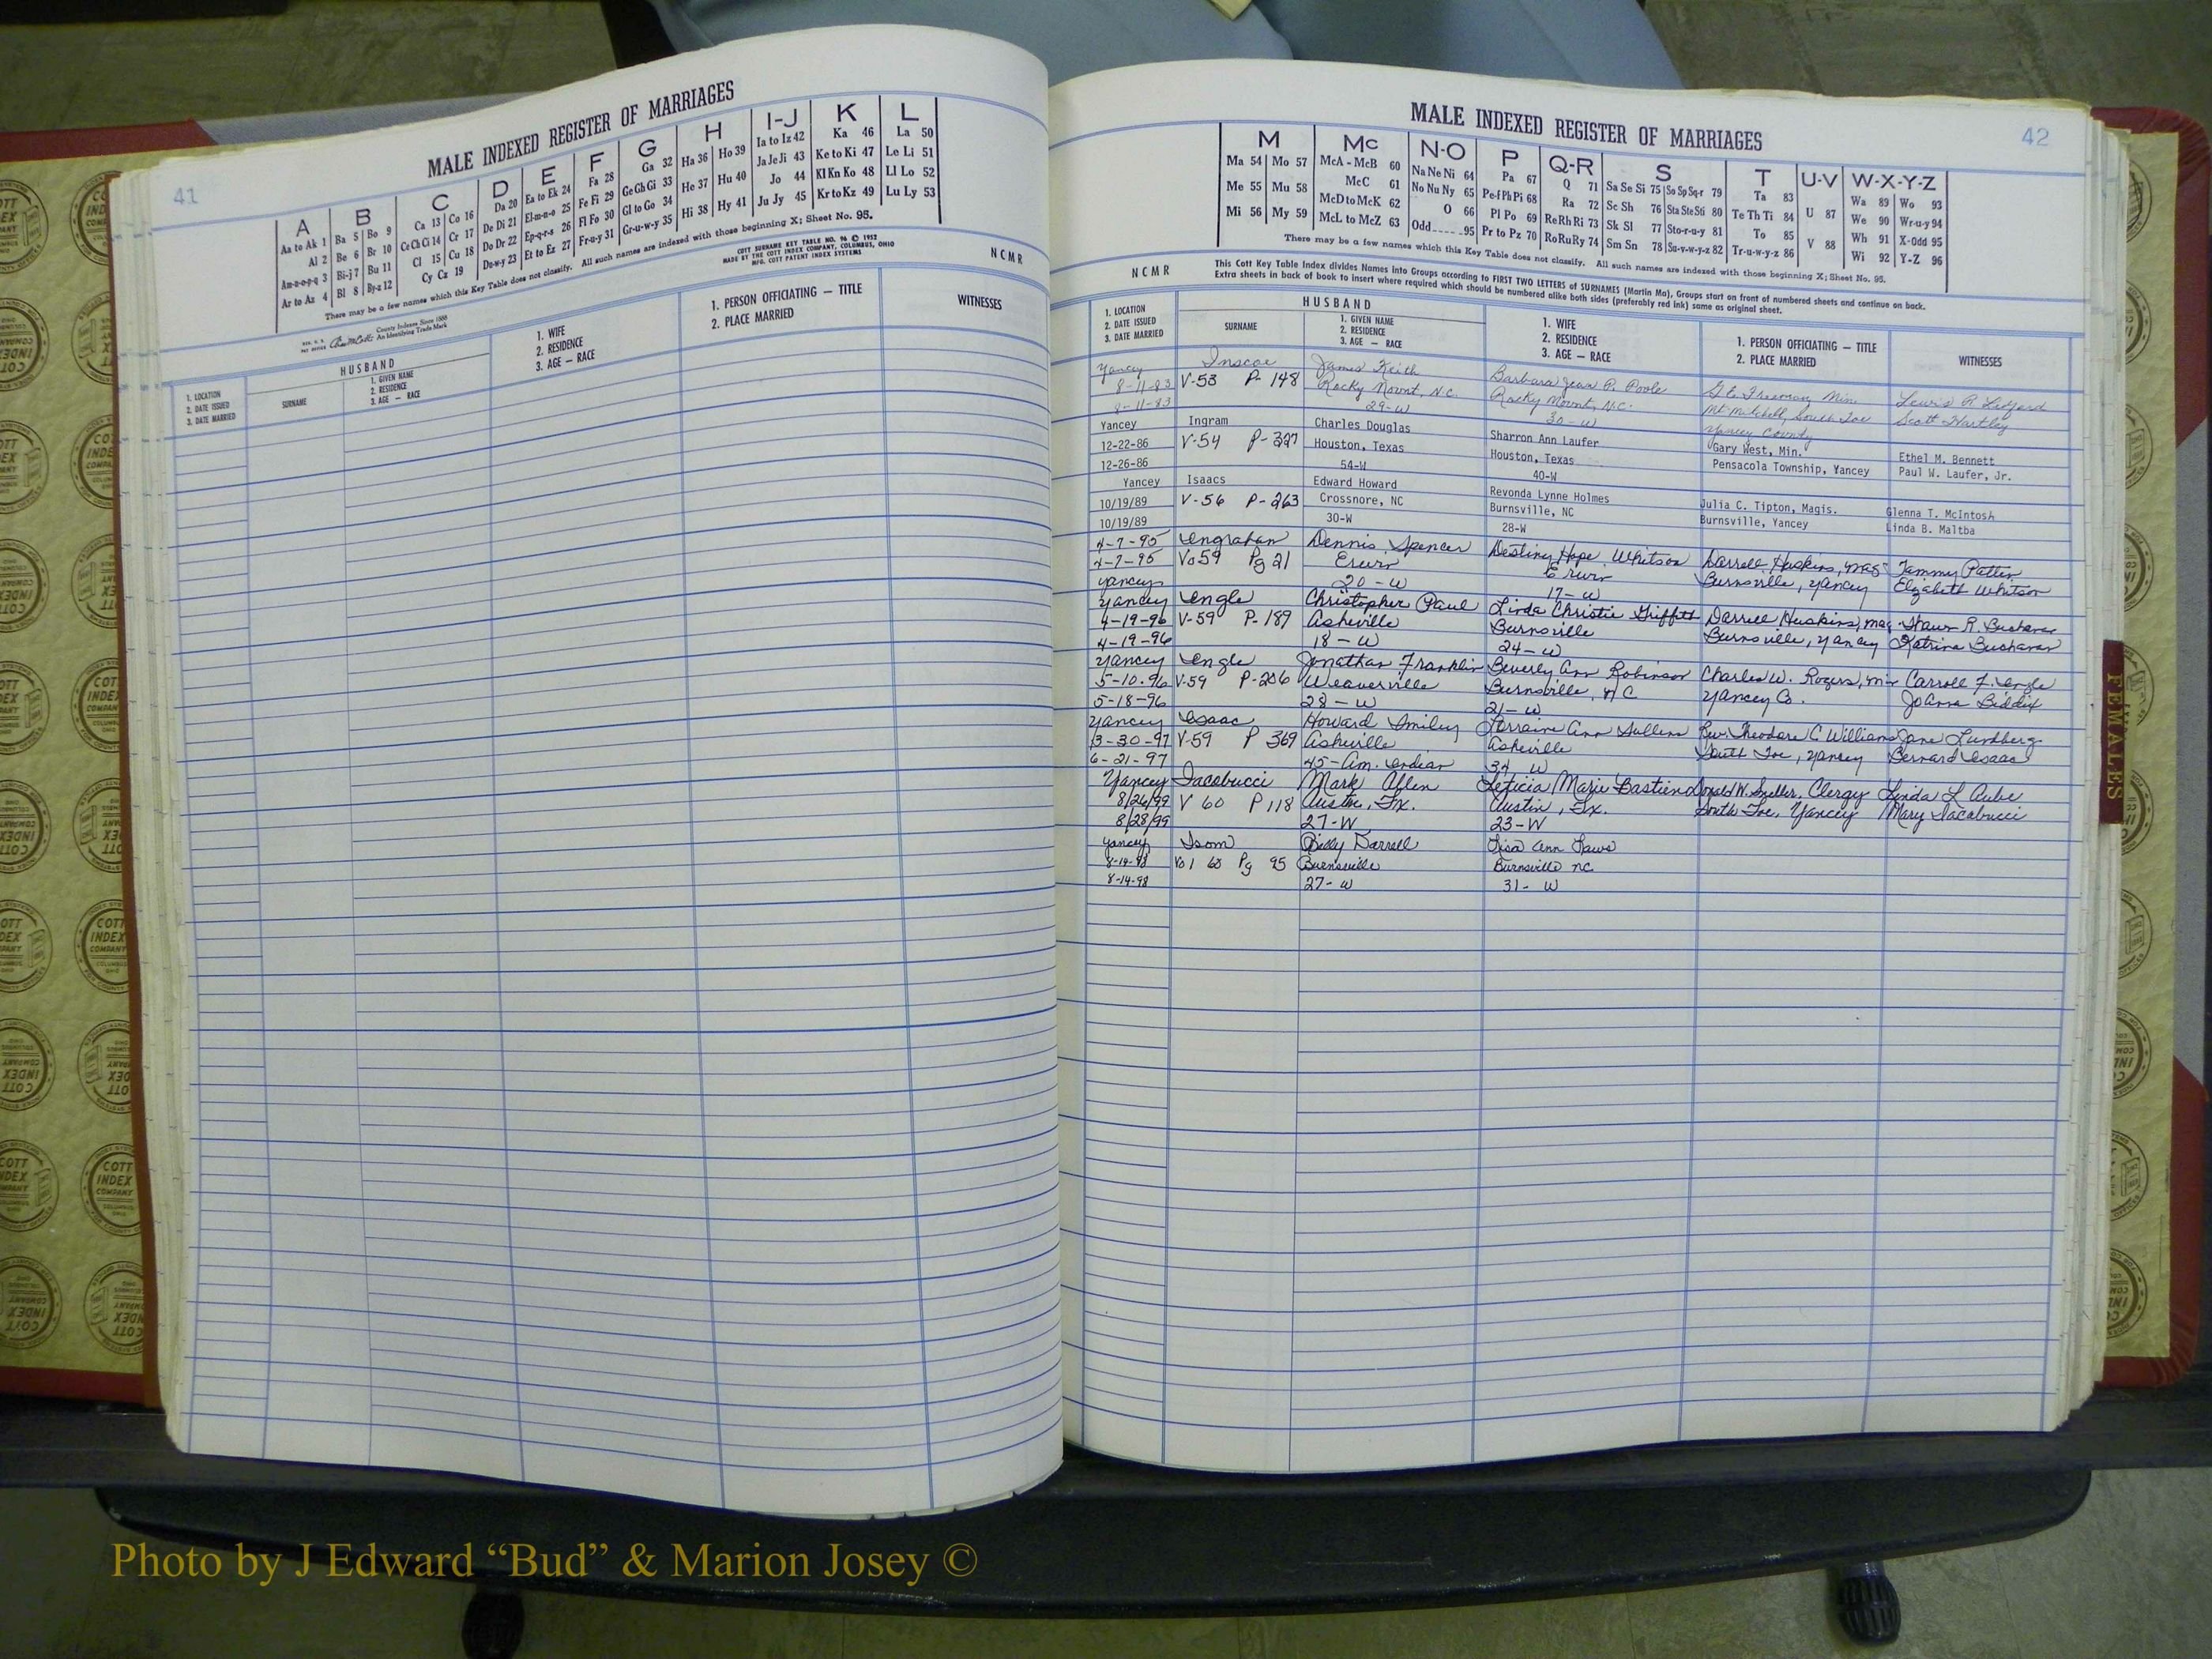 41
MALE INDEXED REGISTER OF MARRIAGES
A
Aa to Ak 1
Al 2
Am-n-o-p-q 3
Ar to Az 4
B
Ba 5 Bo 9
Be 6 Br 10
Bi-j 7 Bu 11
Bl 8 By-z 12
C
Ca 13 Co 16
Ce Ch Ci 14 Cr 17
Cl 15 Cu 18
Cy Cz 19
D
Da 20
De Di 21
Do Dr 22
Du-w-y 23
E
Ea to Ek 24
El-m-n-o 25
Ep-q-r-s 26
Et to Ez 27
F
Fa 28
Fe Fi 29
Fl Fo 30
Fr-u-y 31
G
Ga 32
Ge Gh Gi 33
Gl to Go 34
Gr-u-w-y 35
H
Ha 36 Ho 39
He 37 Hu 40
Hi 38 Hy 41
I-J
Ia to Iz 42
Ja Je Ji 43
Jo 44
Ju Jy 45
K
Ka 46
Ke to Ki 47
Kl Kn Ko 48
Kr to Kz 49
L
La 50
Le Li 51
Ll Lo 52
Lu Ly 53
There may be a few names which this Key Table does not classify. All such names are indexed with those beginning X; Sheet No. 95.
County Indexes Since 1888
An Identifying Trade Mark
COTT SURNAME KEY TABLE NO. 96 © 1952
MADE BY THE COTT INDEX COMPANY, COLUMBUS, OHIO
MFG. COTT PATENT INDEX SYSTEMS
NCMR
1. LOCATION
2. DATE ISSUED
3. DATE MARRIED
HUSBAND
SURNAME
1. GIVEN NAME
2. RESIDENCE
3. AGE — RACE
1. WIFE
2. RESIDENCE
3. AGE — RACE
1. PERSON OFFICIATING — TITLE
2. PLACE MARRIED
WITNESSES
MALE INDEXED REGISTER OF MARRIAGES
42
M
Ma 54 Mo 57
Me 55 Mu 58
Mi 56 My 59
Mc
McA - McB 60
McC 61
McD to McK 62
McL to McZ 63
N-O
Na Ne Ni 64
No Nu Ny 65
O 66
Odd 95
P
Pa 67
Pe-f Ph Pi 68
Pl Po 69
Pr to Pz 70
Q-R
Q 71
Ra 72
Re Rh Ri 73
Ro Ru Ry 74
S
Sa Se Si 75 So Sp Sq-r 79
Sc Sh 76 Sta Ste Sti 80
Sk Sl 77 Sto-r-u-y 81
Sm Sn 78 Su-v-w-y-z 82
T
Ta 83
Te Th Ti 84
To 85
Tr-u-w-y-z 86
U-V
U 87
V 88
W-X-Y-Z
Wa 89 Wo 93
We 90 Wr-u-y 94
Wh 91 X-Odd 95
Wi 92 Y-Z 96
There may be a few names which this Key Table does not classify. All such names are indexed with those beginning X; Sheet No. 95.
NCMR
This Cott Key Table Index divides Names into Groups according to FIRST TWO LETTERS of SURNAMES (Martin Ma), Groups start on front of numbered sheets and continue on back.
Extra sheets in back of book to insert where required which should be numbered alike both sides (preferably red ink) same as original sheet.
1. LOCATION
2. DATE ISSUED
3. DATE MARRIED
HUSBAND
SURNAME
1. GIVEN NAME
2. RESIDENCE
3. AGE — RACE
1. WIFE
2. RESIDENCE
3. AGE — RACE
1. PERSON OFFICIATING — TITLE
2. PLACE MARRIED
WITNESSES
Yancey Inscoe James Keith Barbara Jean P. Poole G.C. Freeman, Min. Lewis R Ledford
8-11-83 V-53 P-148 Rocky Mount, N.C. Rocky Mount, N.C. Mt. Mitchell, South Toe Scott Hartley
8-11-83 29-W 30-W Yancey County
Yancey Ingram Charles Douglas Sharron Ann Laufer Gary West, Min. Ethel M. Bennett
12-22-86 V-54 P-327 Houston, Texas Houston, Texas Pensacola Township, Yancey Paul W. Laufer, Jr.
12-26-86 54-W 40-W
Yancey Isaacs Edward Howard Revonda Lynne Holmes Julia C. Tipton, Magis. Glenna T. McIntosh
10/19/89 V-56 P-263 Crossnore, NC Burnsville, NC Burnsville, Yancey Linda B. Maltba
10/19/89 30-W 28-W
4-7-95 Ingrahan Dennis Spencer Destiny Hope Whitson Darrell Huskins, Mag Tammy Patten
4-7-95 Vo 59 Pg 21 Erwin Erwin Burnsville, Yancey Elizabeth Whitson
Yancey 20-W 17-W
Yancey Ingle Christopher Paul Linda Christie Griffith Darrell Huskins, Mag Shawn R. Buchanan
4-19-96 V-59 P-189 Asheville Burnsville Burnsville, Yancey Katrina Buchanan
4-19-96 18-W 24-W
Yancey Ingle Jonathan Franklin Beverly Ann Robinson Charles W. Rogers, Min Carroll F. Ingle
5-10-96 V-59 P-206 Weaverville Burnsville, NC Yancey Co. JoAnna Biddix
5-18-96 28-W 21-W
Yancey Isaac Howard Smiley Lorraine Ann Sullens Rev. Theodore C. Williams Jane Lundberg
3-30-97 V-59 P 369 Asheville Asheville South Toe, Yancey Bernard Isaac
6-21-97 45-Am. Indian 34 W
Yancey Iacobucci Mark Allen Leticia Marie Bastien Donald W. Sneller, Clergy Linda L Aube
8/26/99 V 60 P 118 Austin, Tx. Austin, Tx. South Toe, Yancey Mary Iacobucci
8/28/99 27-W 23-W
Yancey Isom Billy Darrell Lisa Ann Laws
8-14-98 Vol 60 Pg 95 Burnsville Burnsville NC
8-14-98 27-W 31-W
FEMALES
COTT INDEX COMPANY
Photo by J Edward “Bud” & Marion Josey ©